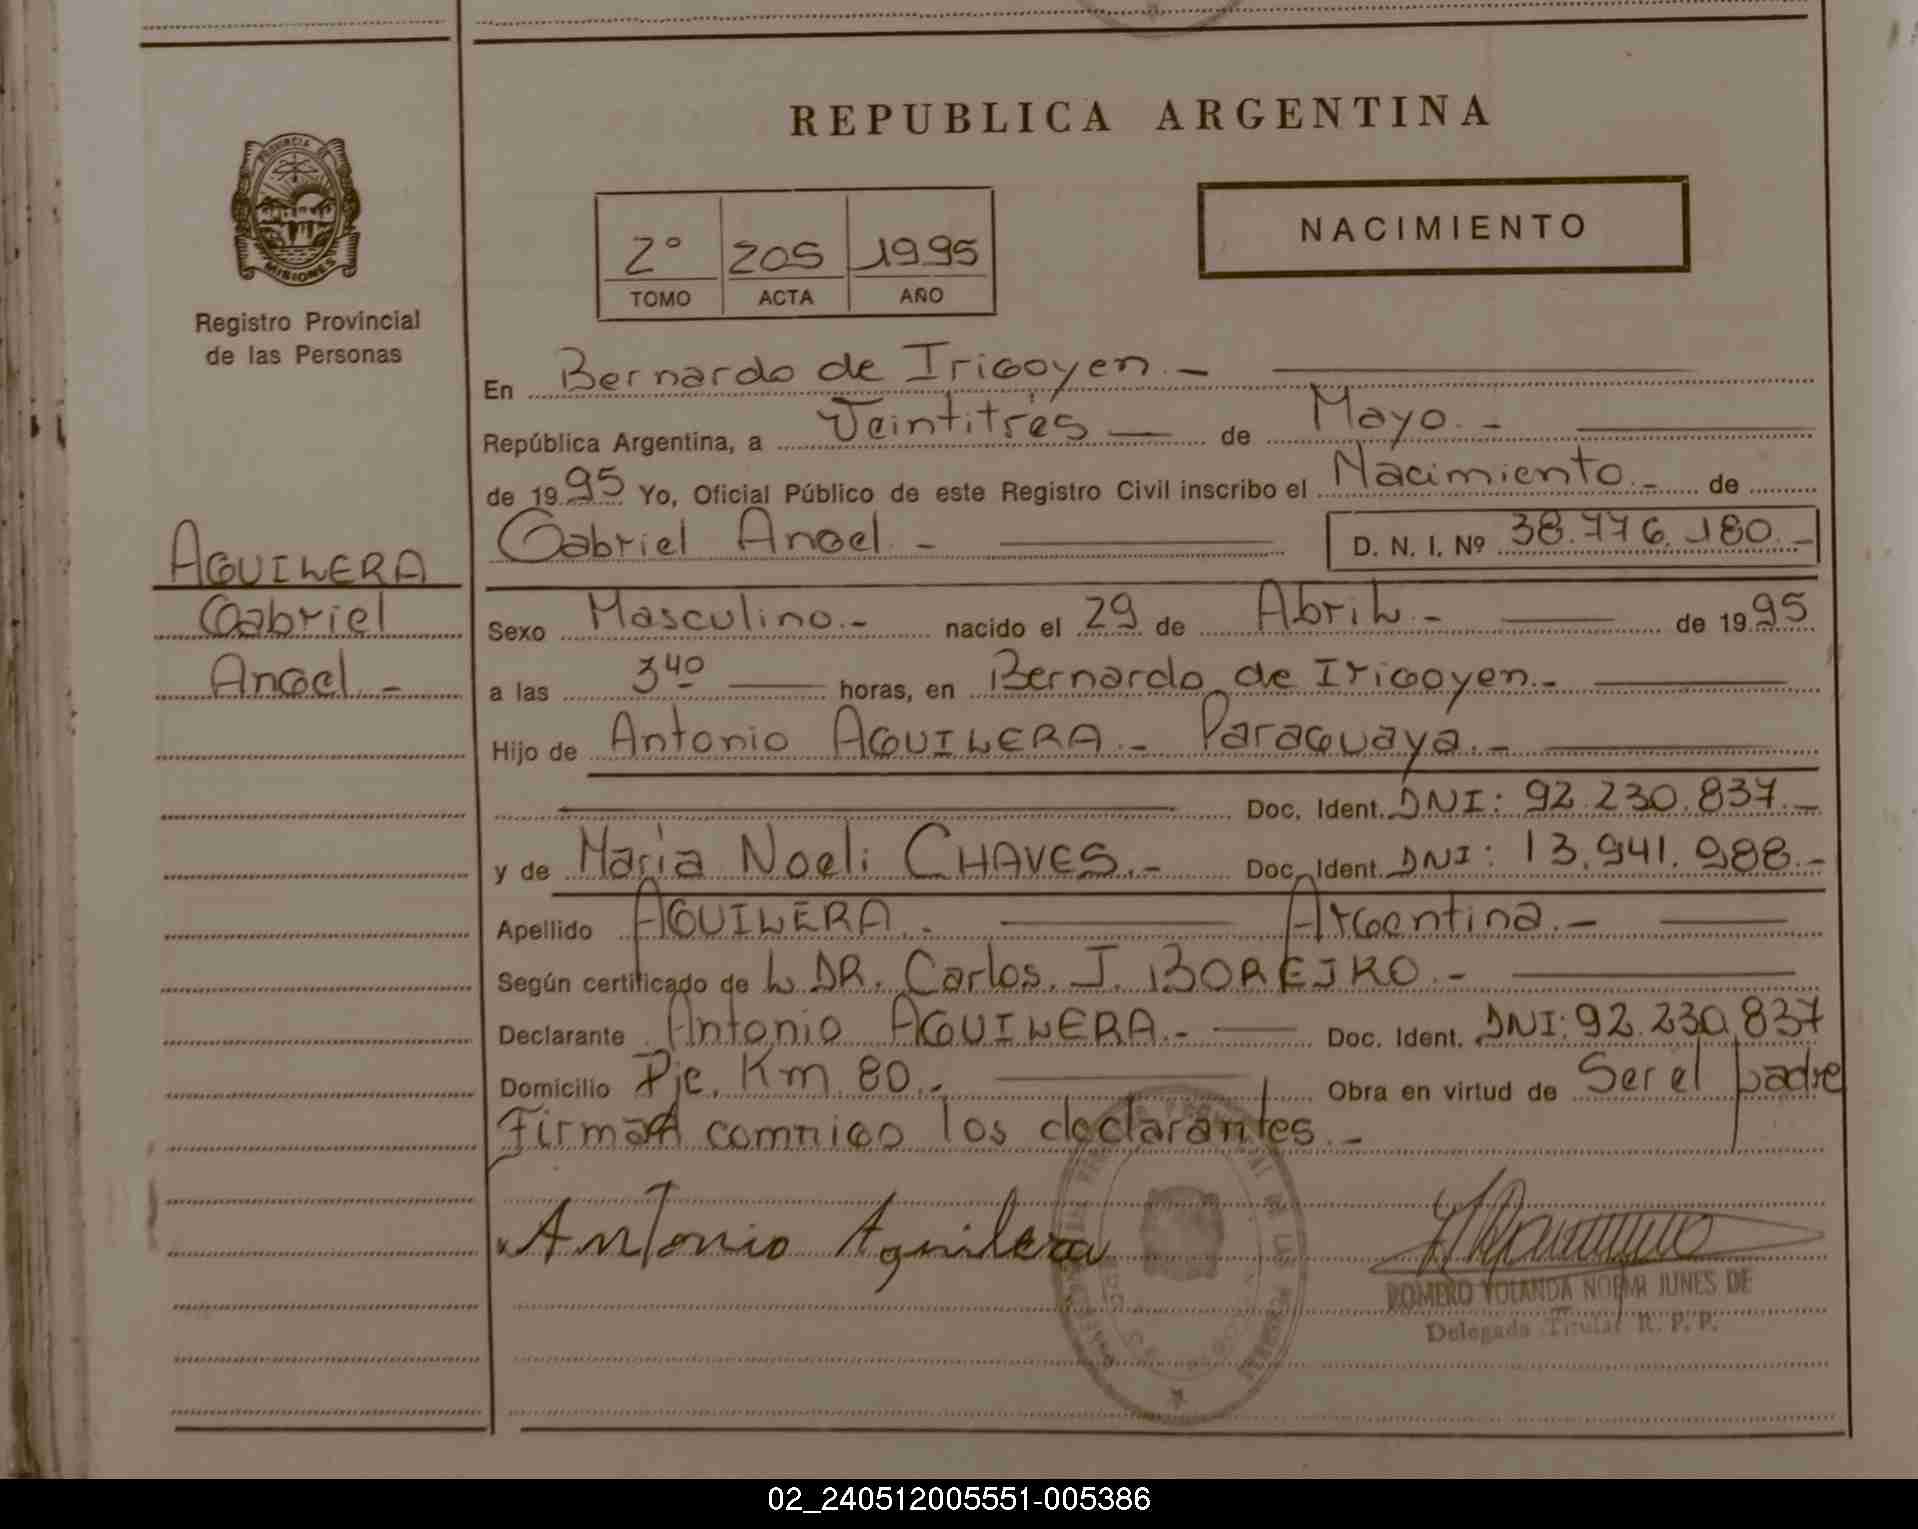 REPUBLICA ARGENTINA
PROVINCIA DE
MISIONES
Registro Provincial
de las Personas
2º 205 1995
TOMO ACTA AÑO
NACIMIENTO
En Bernardo de Irigoyen.-
República Argentina, a Veintitrés de Mayo.-
de 1995 Yo, Oficial Público de este Registro Civil inscribo el Nacimiento.- de
Gabriel Angel.- D. N. I. Nº 38.776.180.-
AGUILERA
Gabriel
Angel.-
Sexo Masculino.- nacido el 29 de Abril.- de 1995
a las 3 40 horas, en Bernardo de Irigoyen.-
Hijo de Antonio AGUILERA.- Paraguaya.-
Doc. Ident. DNI: 92.230.837.-
y de María Noeli CHAVES.- Doc. Ident. DNI: 13.941.988.-
Apellido AGUILERA.- Argentina.-
Según certificado de L DR. Carlos. J. BOREJKO.-
Declarante Antonio AGUILERA.- Doc. Ident. DNI: 92.230.837
Domicilio Pje. Km 80.- Obra en virtud de Ser el padre
Firman conmigo los declarantes.-
Antonio Aguilera
ROMERO YOLANDA NOEMI JUNES DE
Delegada Titular R. P. P.
02_240512005551-005386